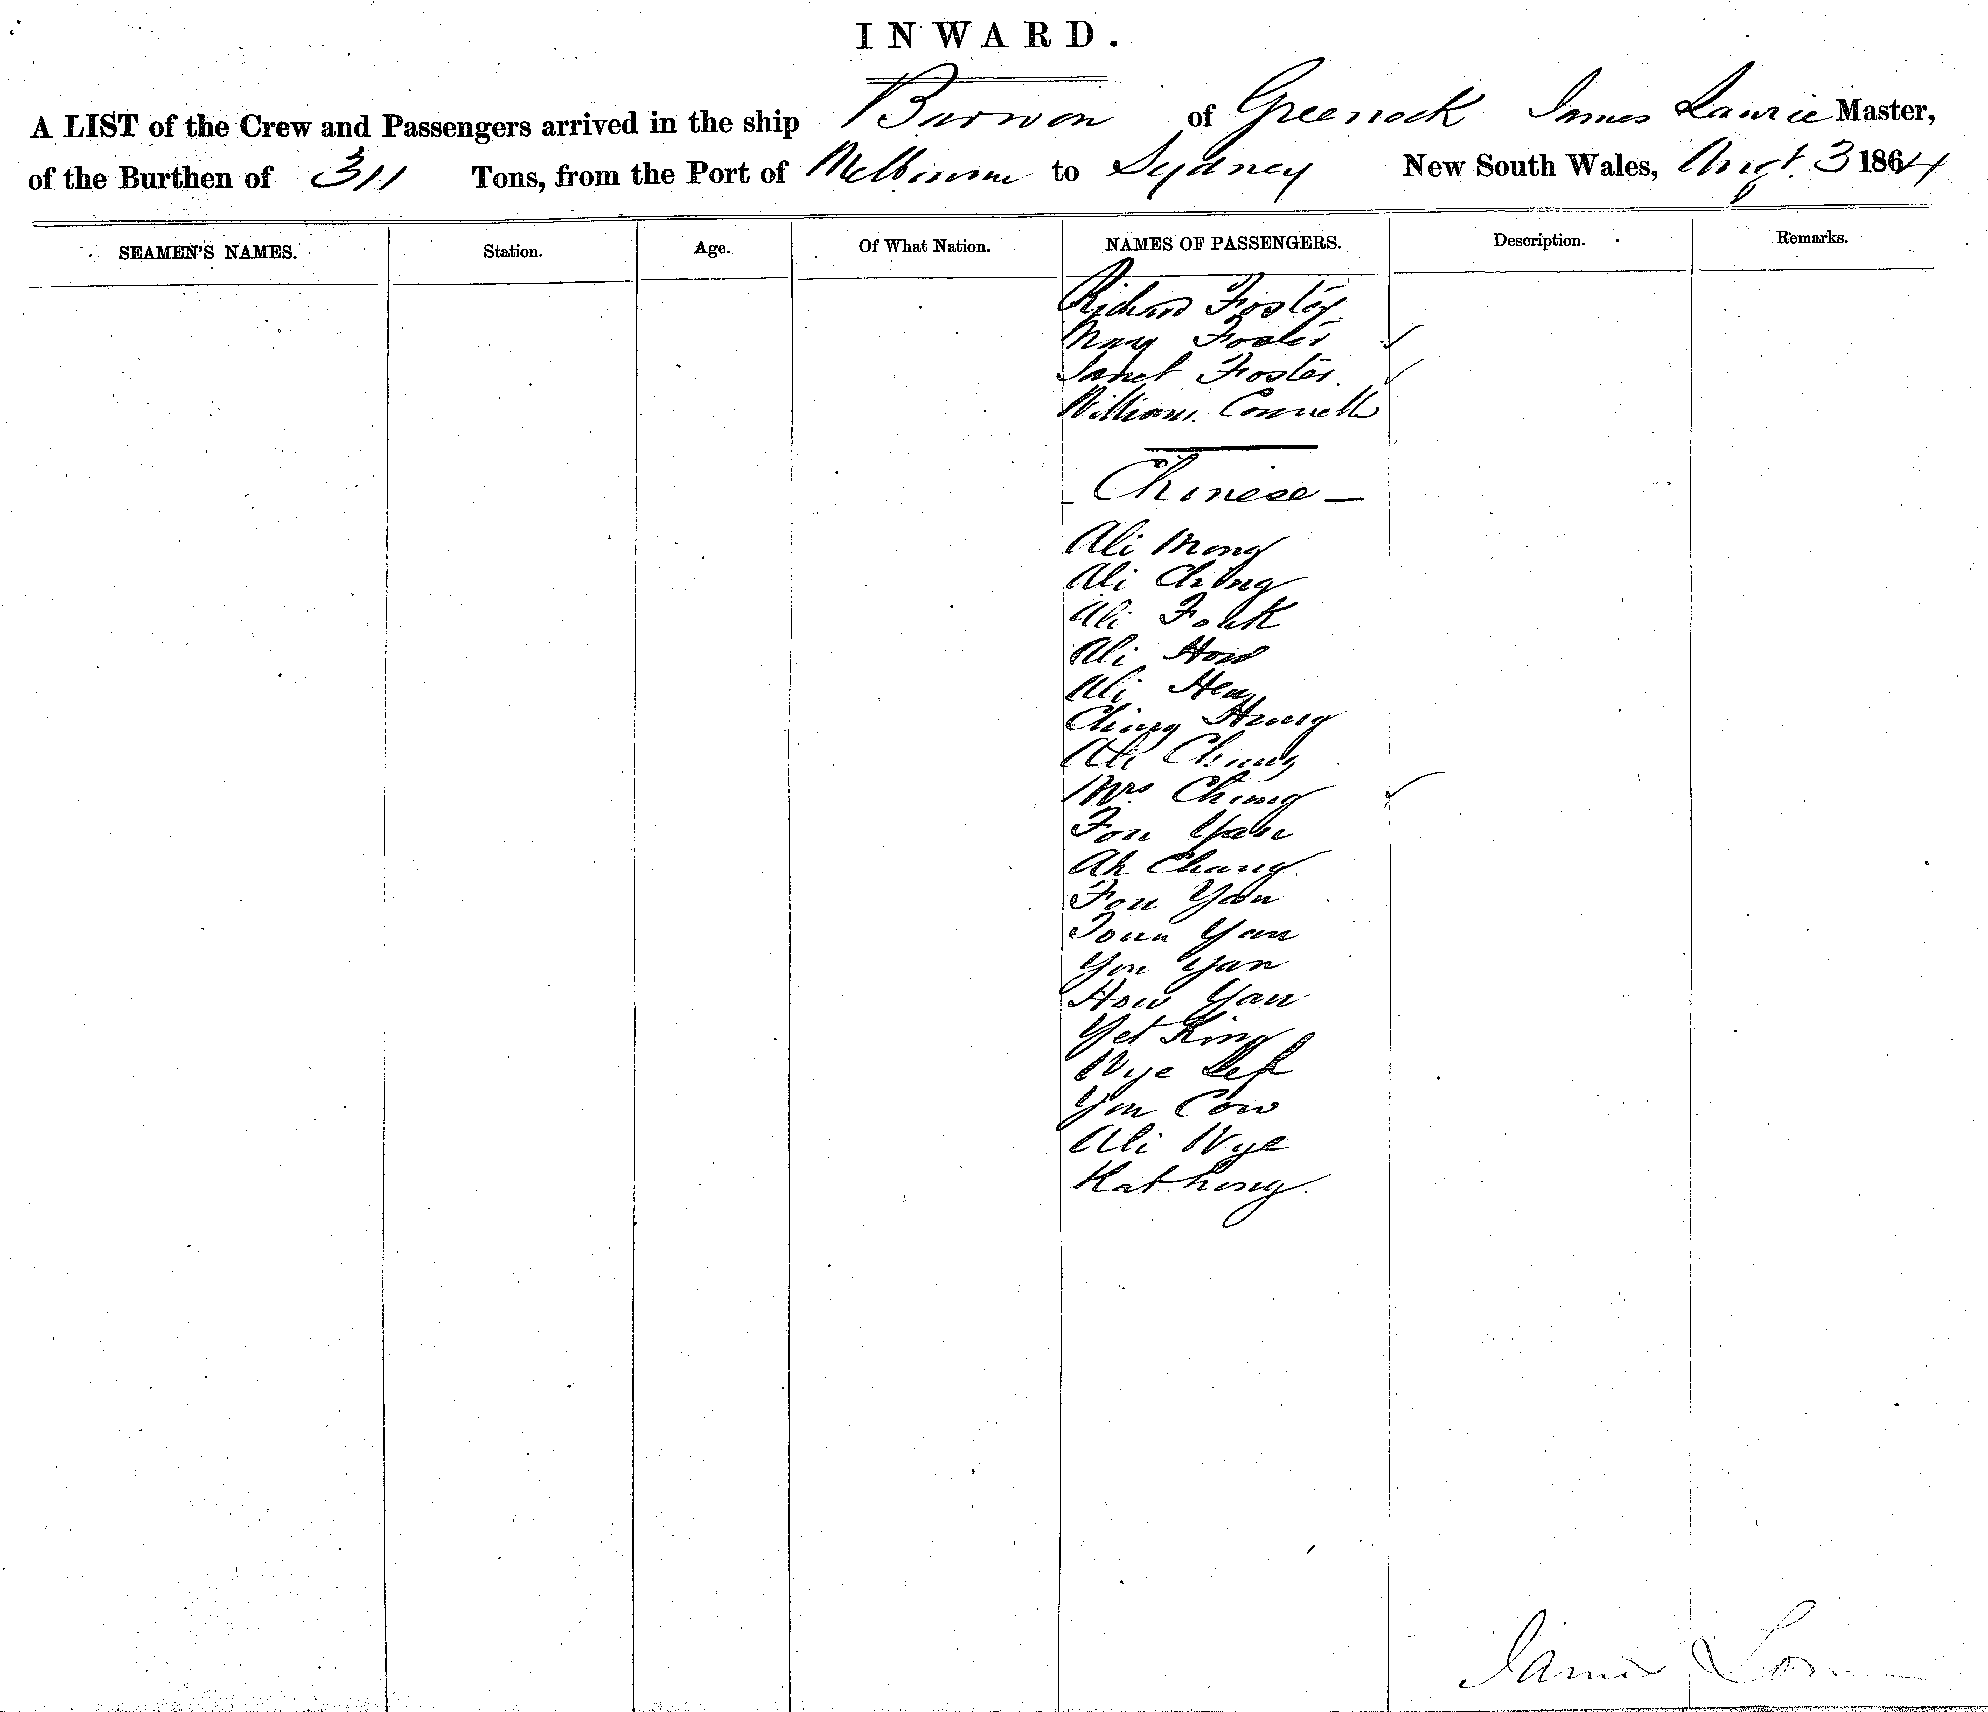 INWARD.
A LIST of the Crew and Passengers arrived in the ship Barwon of Greenock James Laurie Master,
of the Burthen of 311 Tons, from the Port of Melbourne to Sydney New South Wales, Augt. 3 1864
SEAMEN'S NAMES. Station. Age. Of What Nation. NAMES OF PASSENGERS. Description. Remarks.
Richard Foster
Mary Foster
Janet Foster
William Connell
Chinese
Ali Mong
Ali Ching
Ali Fouk
Ali How
Ali Hen
Ching Hung
Ali Chung
Mrs Chung
Fou Yan
Ah Chang
Fou Yan
Youn Yan
You Yan
How Yan
Yet King
Wye
You Cow
Ali Wye
Kathong
James